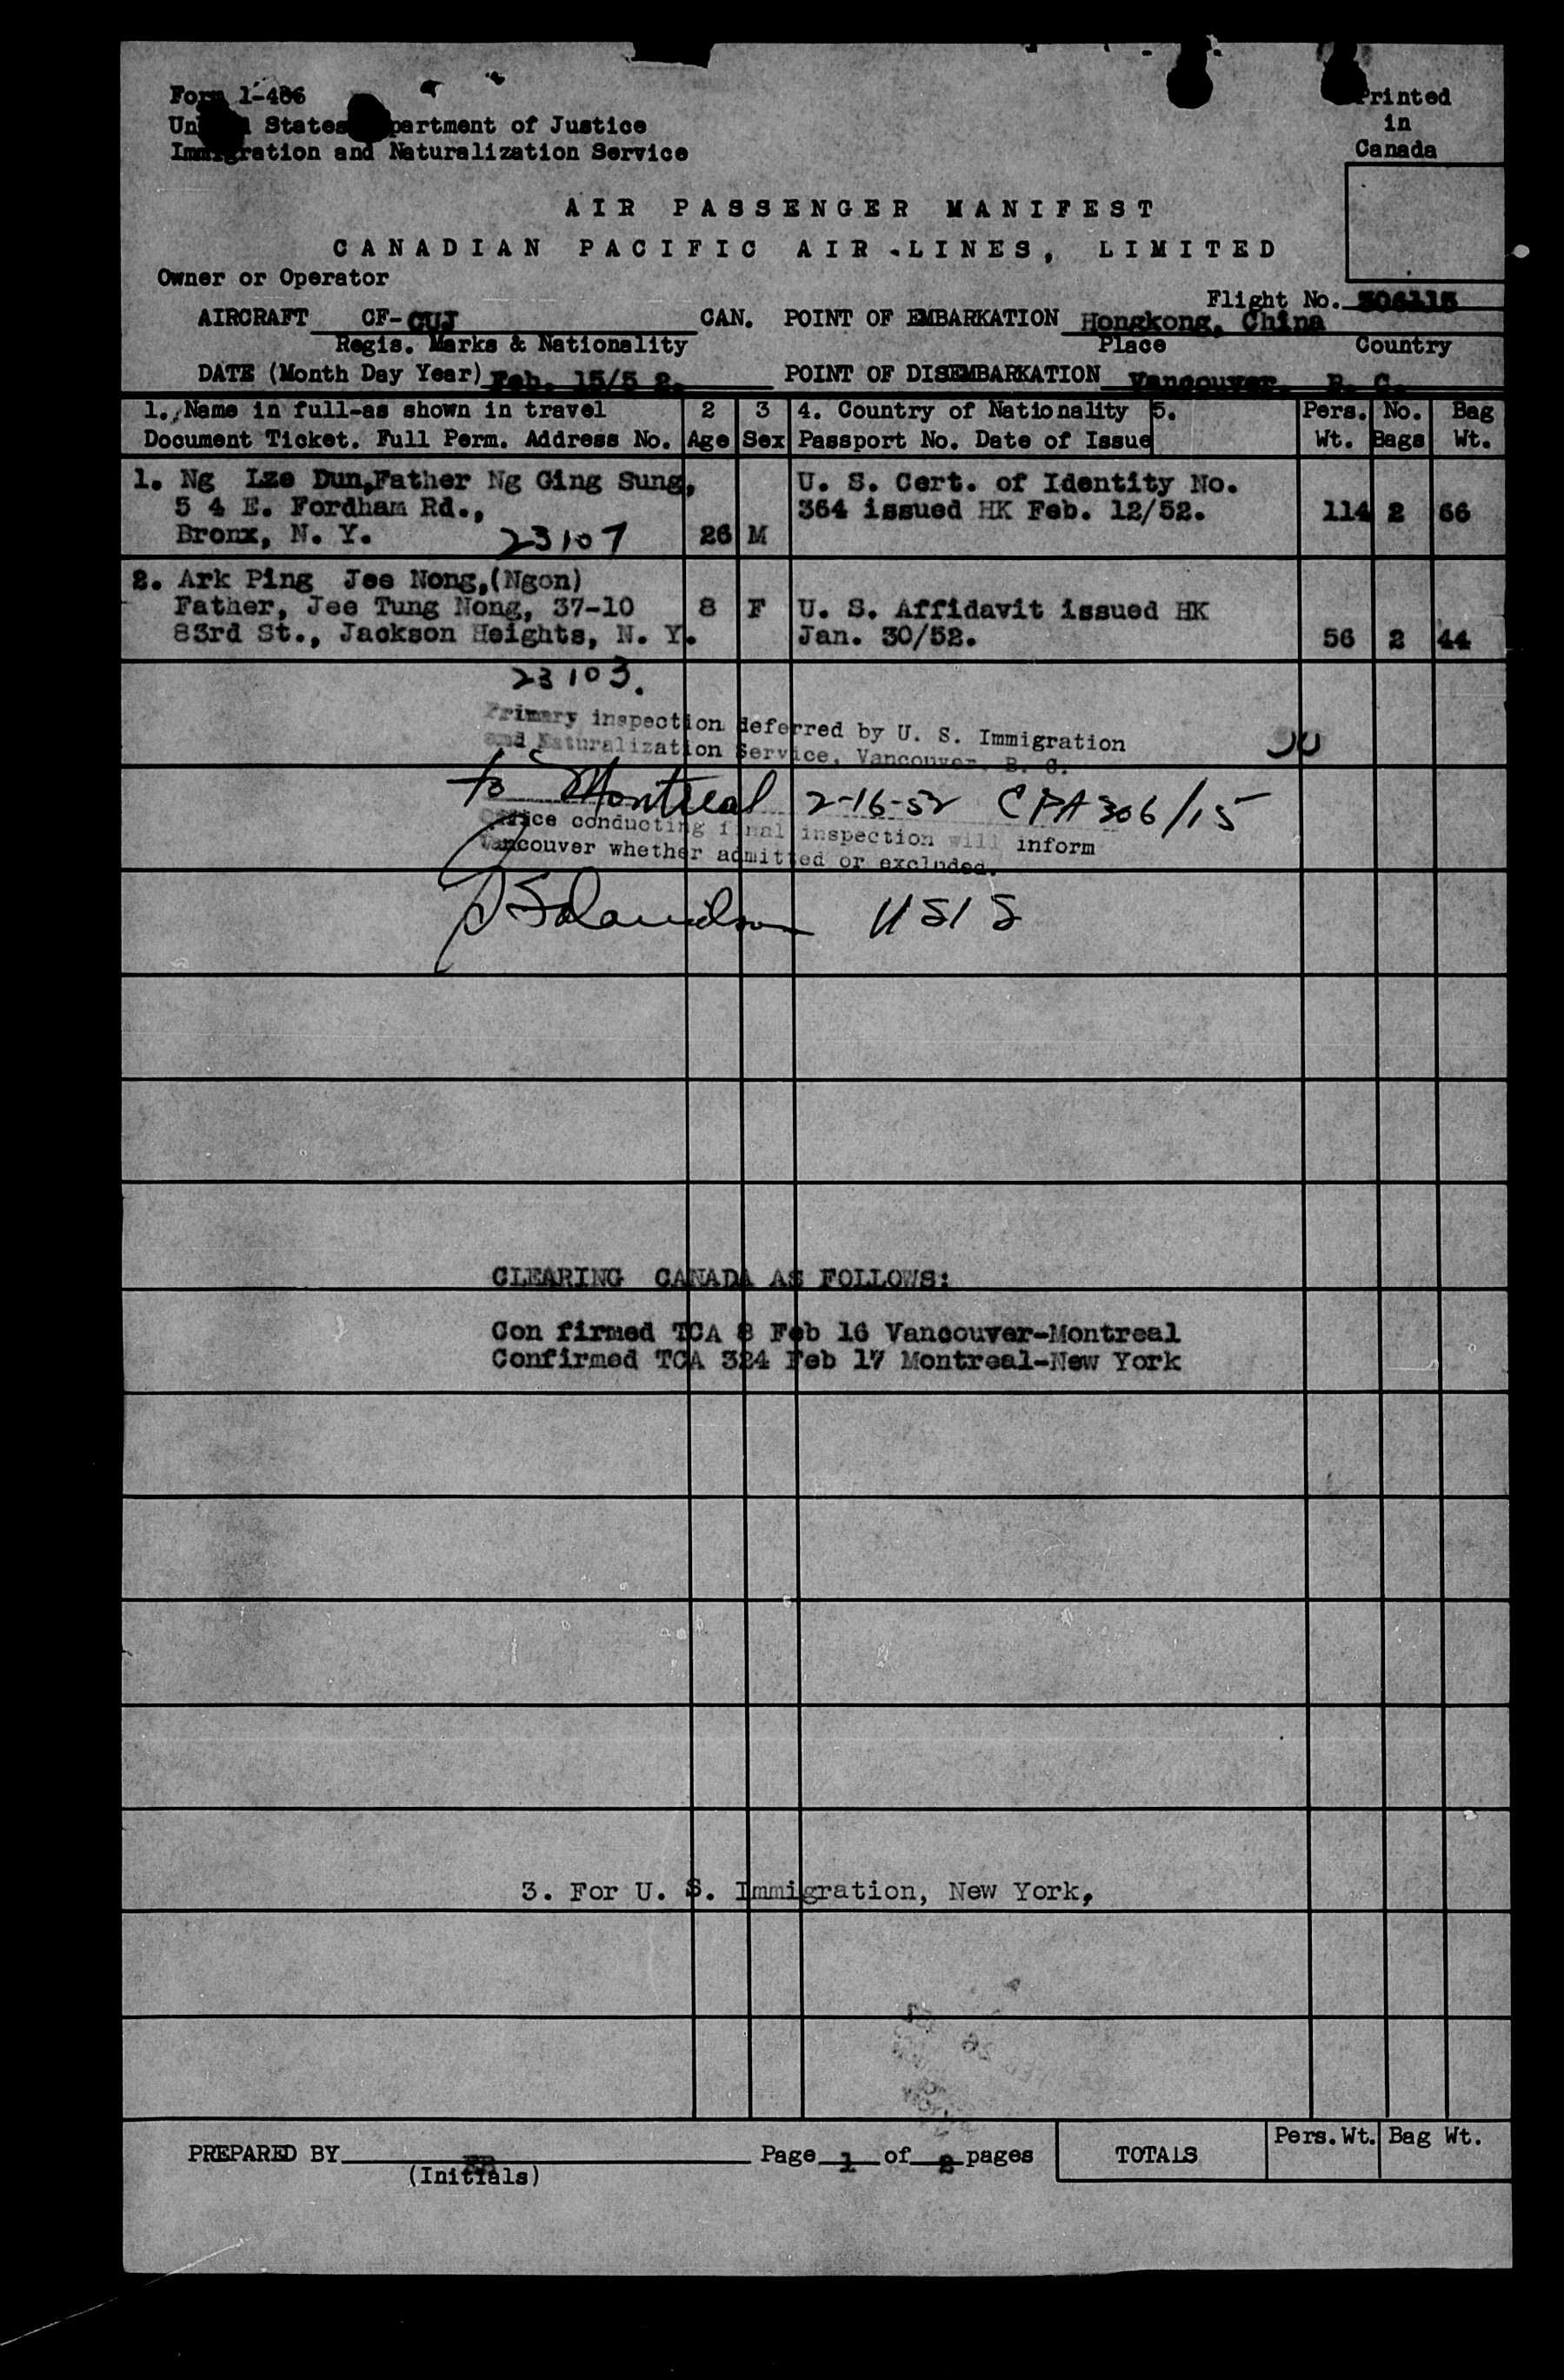 Form I-466
United States Department of Justice
Immigration and Naturalization Service
Printed
in
Canada
AIR PASSENGER MANIFEST
CANADIAN PACIFIC AIR LINES, LIMITED
Owner or Operator
Flight No. 306115
AIRCRAFT CF-CUJ CAN. POINT OF EMBARKATION Hongkong, China
Regis. Marks & Nationality Place Country
DATE (Month Day Year) Feb. 15/5 2. POINT OF DISEMBARKATION Vancouver B. C.
1. Name in full-as shown in travel 2 3 4. Country of Nationality 5. Pers. No. Bag
Document Ticket. Full Perm. Address No. Age Sex Passport No. Date of Issue Wt. Bags Wt.
1. Ng Lze Dun, Father Ng Ging Sung, U. S. Cert. of Identity No.
5 4 E. Fordham Rd., 364 issued HK Feb. 12/52. 114 2 66
Bronx, N. Y. 23107 26 M
2. Ark Ping Jee Nong,(Ngon)
Father, Jee Tung Nong, 37-10 8 F U. S. Affidavit issued HK
83rd St., Jackson Heights, N. Y. Jan. 30/52. 56 2 44
23103.
Primary inspection deferred by U. S. Immigration
and Naturalization Service, Vancouver, B. C.
to Montreal 2-16-52 CPA 306/15
Office conducting final inspection will inform
Vancouver whether admitted or excluded.
USIS
CLEARING CANADA AS FOLLOWS:
Con firmed TCA 8 Feb 16 Vancouver-Montreal
Confirmed TCA 324 Feb 17 Montreal-New York
3. For U. S. Immigration, New York,
PREPARED BY Page 1 of 2 pages TOTALS Pers. Wt. Bag Wt.
(Initials)